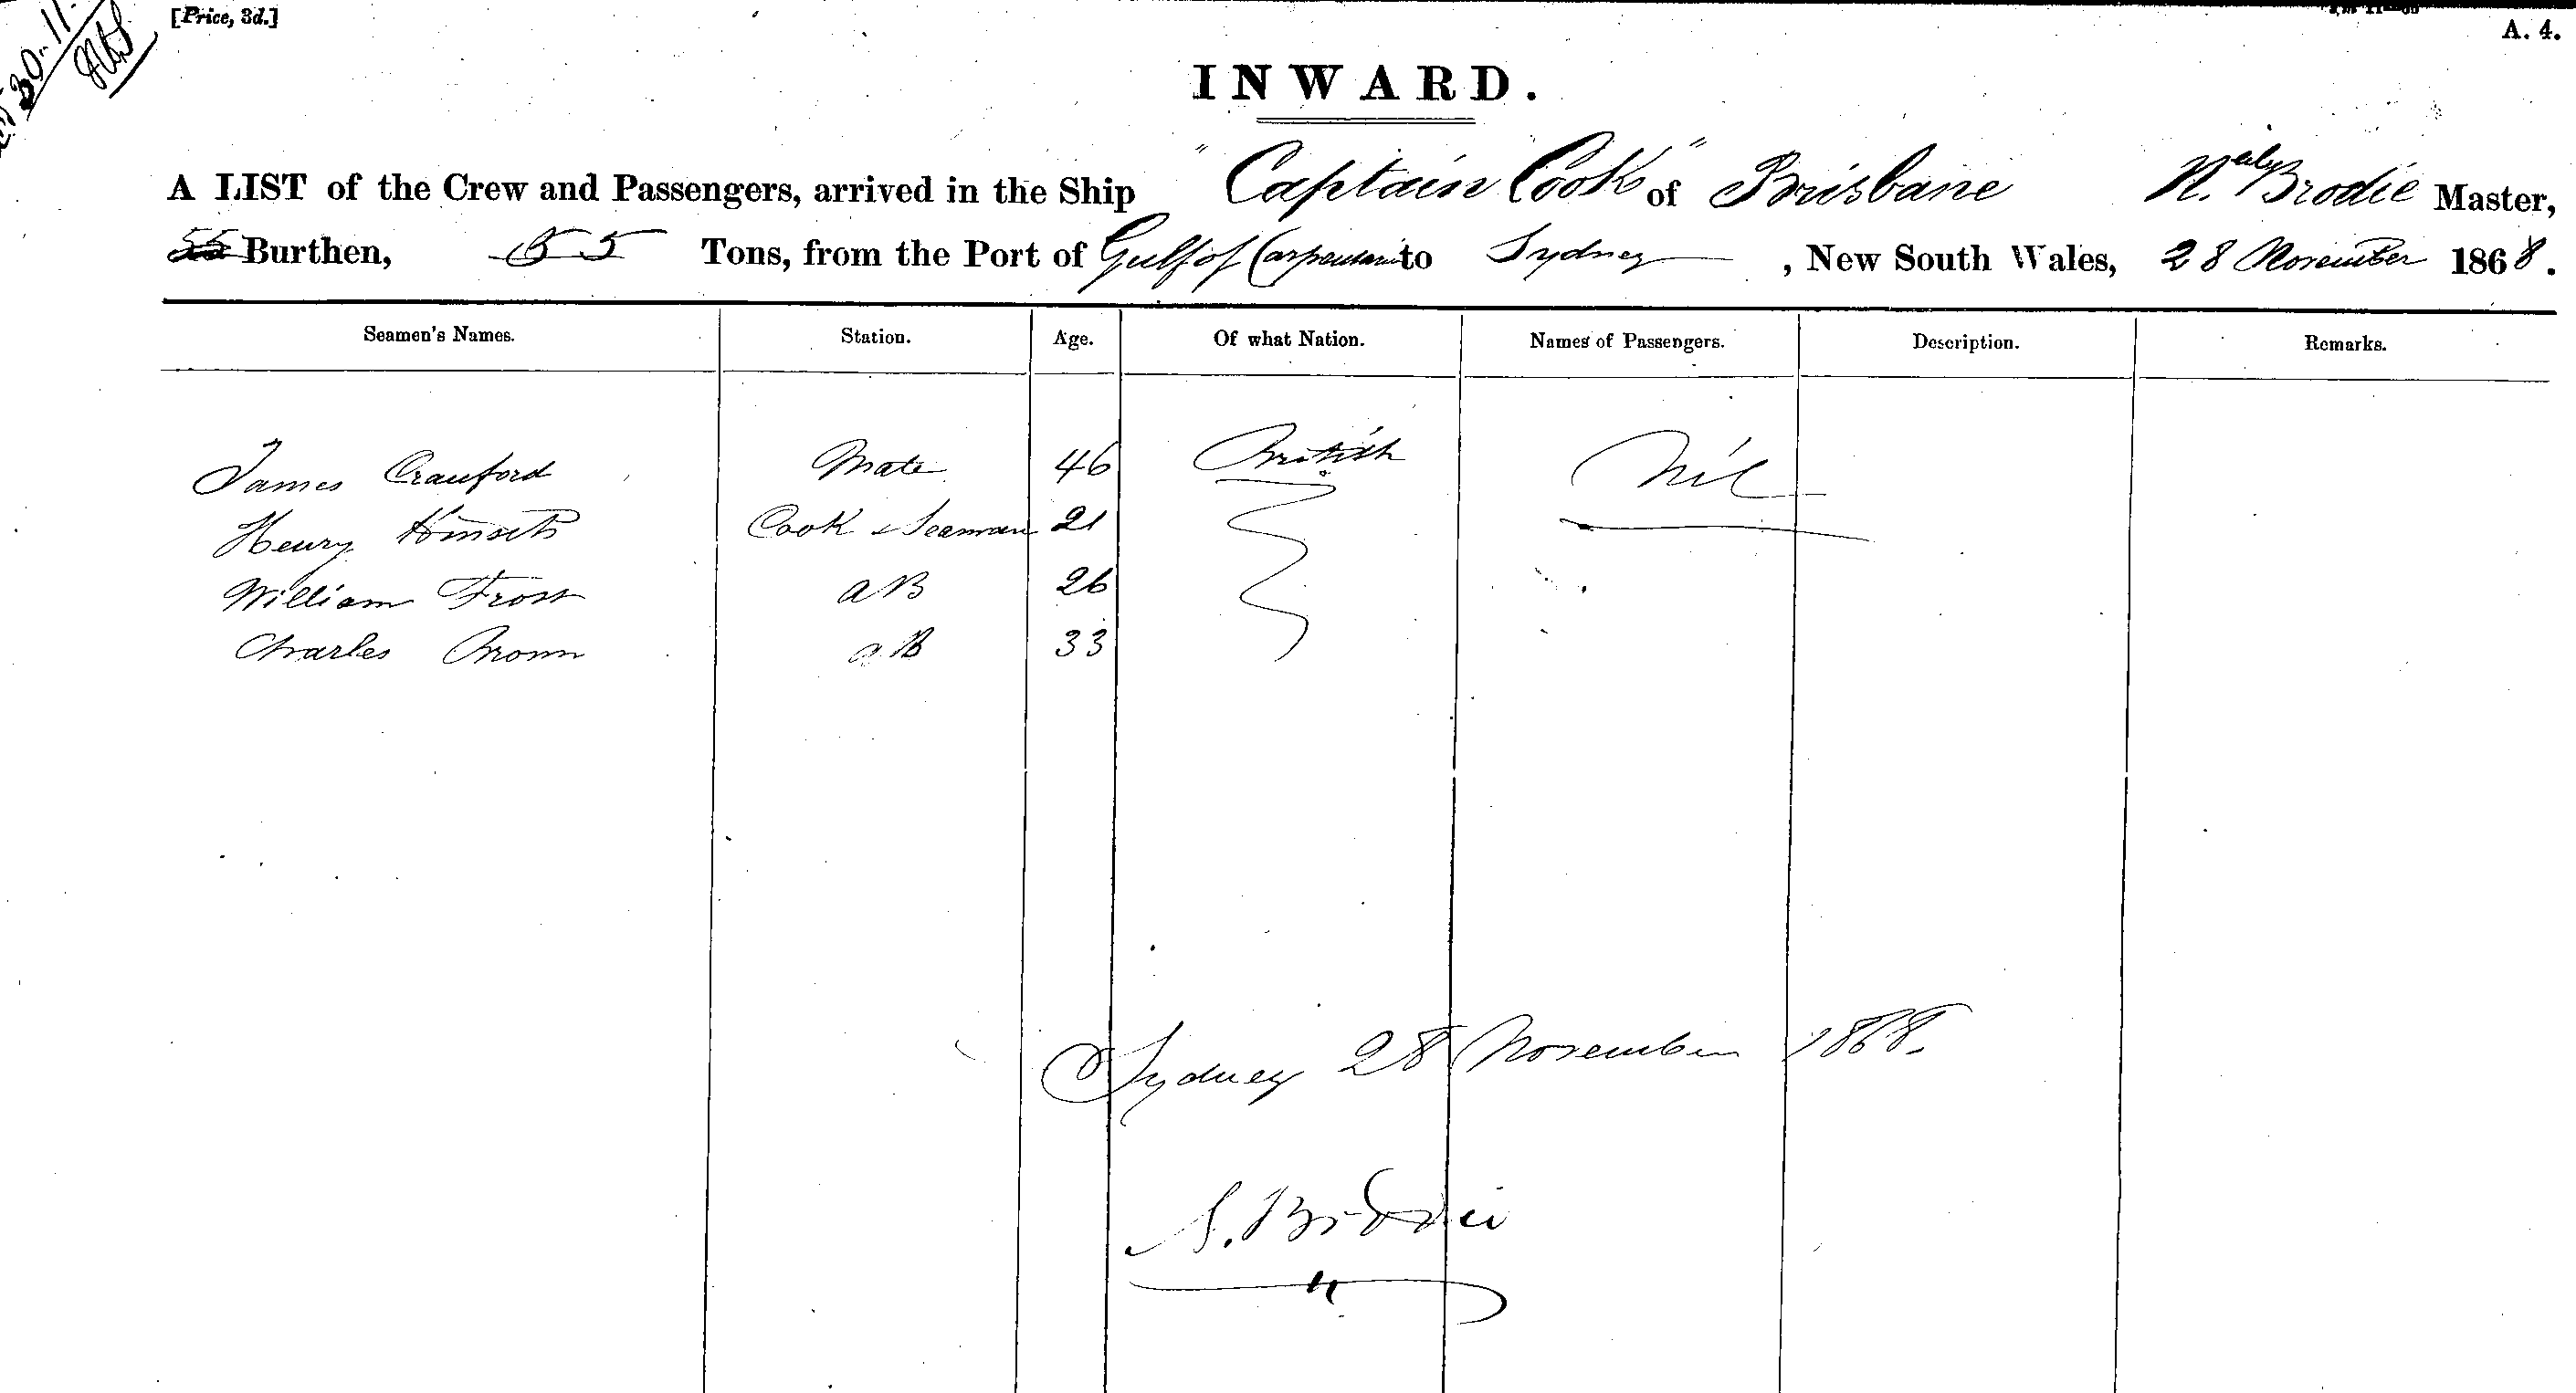 [Price, 3d.]
A. 4.
30.11.
INWARD.
A LIST of the Crew and Passengers, arrived in the Ship "Captain Cook" of Brisbane N. Brodie Master,
55 Burthen, 55 Tons, from the Port of Gulf of Carpentaria to Sydney, New South Wales, 28 November 1868.
Seamen's Names. Station. Age. Of what Nation. Names of Passengers. Description. Remarks.
James Crauford Mate 46 British Nil
Henry Cook & Seaman 21
William Frost AB 26
Charles Brown AB 33
Sydney 28 November 1868.
N. Brodie